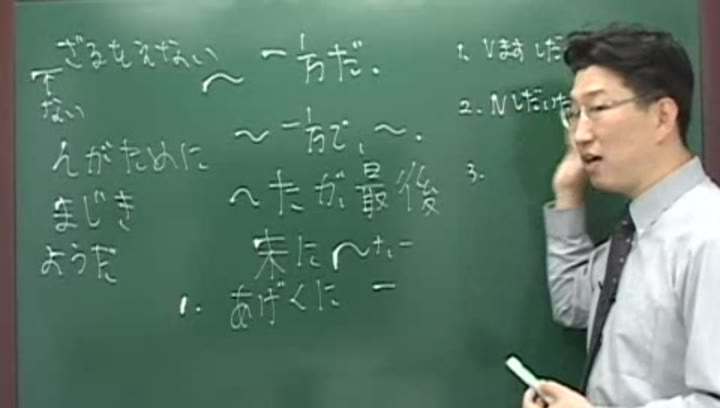 ざるをえない
ない
んがために
まじき
ようだ
〜一方だ.
〜一方で、〜.
〜たが最後
末に〜
1. あげくに ー
1. Vますしだ
2. Nしだい
3.